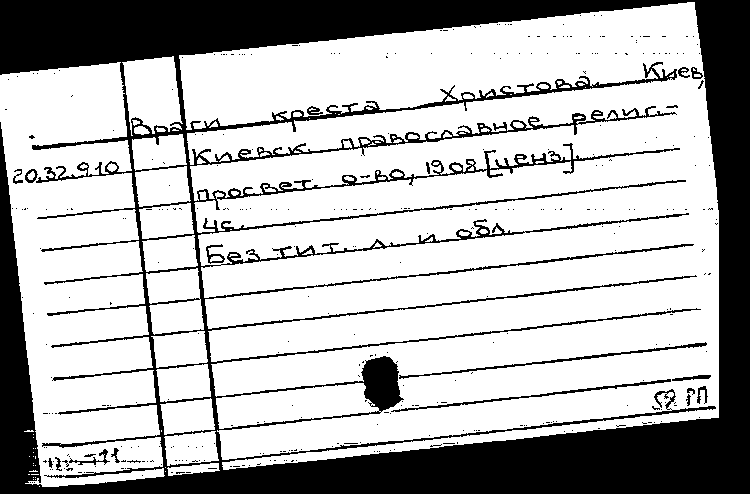 Враги креста Христова. Киев,
20.32.9.10 Киевск. православное религ.-
просвет. о-во, 1908 [ценз].
4с.
Без тит. л. и обл.
59 РП